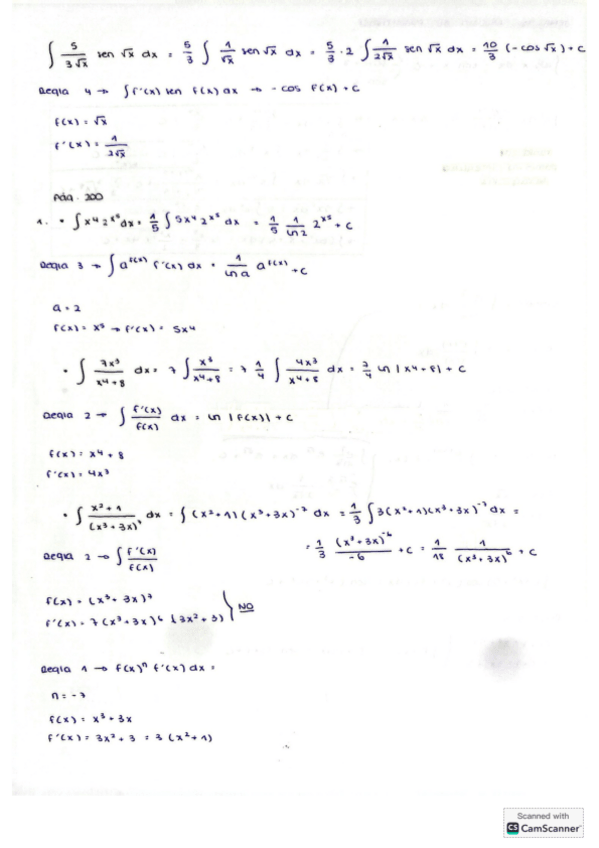 ∫ 5/(3√x) sen √x dx = 5/3 ∫ 1/√x sen √x dx = 5/3 · 2 ∫ 1/(2√x) sen √x dx = 10/3 (-cos √x) + C
Regla 4 → ∫ f'(x) sen f(x) dx → -cos f(x) + C
f(x) = √x
f'(x) = 1/(2√x)
PÁG. 200
1. • ∫ x⁴ 2^(x⁵) dx = 1/5 ∫ 5x⁴ 2^(x⁵) dx = 1/5 1/ln 2 2^(x⁵) + C
Regla 3 → ∫ a^(f(x)) f'(x) dx = 1/ln a a^(f(x)) + C
a = 2
f(x) = x⁵ → f'(x) = 5x⁴
• ∫ 7x³/(x⁴+8) dx = 7 ∫ x³/(x⁴+8) = 7 1/4 ∫ 4x³/(x⁴+8) dx = 7/4 ln |x⁴+8| + C
Regla 2 → ∫ f'(x)/f(x) dx = ln |f(x)| + C
f(x) = x⁴ + 8
f'(x) = 4x³
• ∫ (x²+1)/(x³+3x)⁷ dx = ∫ (x²+1)(x³+3x)⁻⁷ dx = 1/3 ∫ 3(x²+1)(x³+3x)⁻⁷ dx =
= 1/3 (x³+3x)⁻⁶/-6 + C = 1/18 1/(x³+3x)⁶ + C
Regla 2 → ∫ f'(x)/f(x)
f(x) = (x³+3x)⁷
f'(x) = 7(x³+3x)⁶ (3x²+3) } NO
Regla 1 → f(x)ⁿ f'(x) dx =
n = -7
f(x) = x³ + 3x
f'(x) = 3x² + 3 = 3 (x²+1)
Scanned with
CS CamScanner